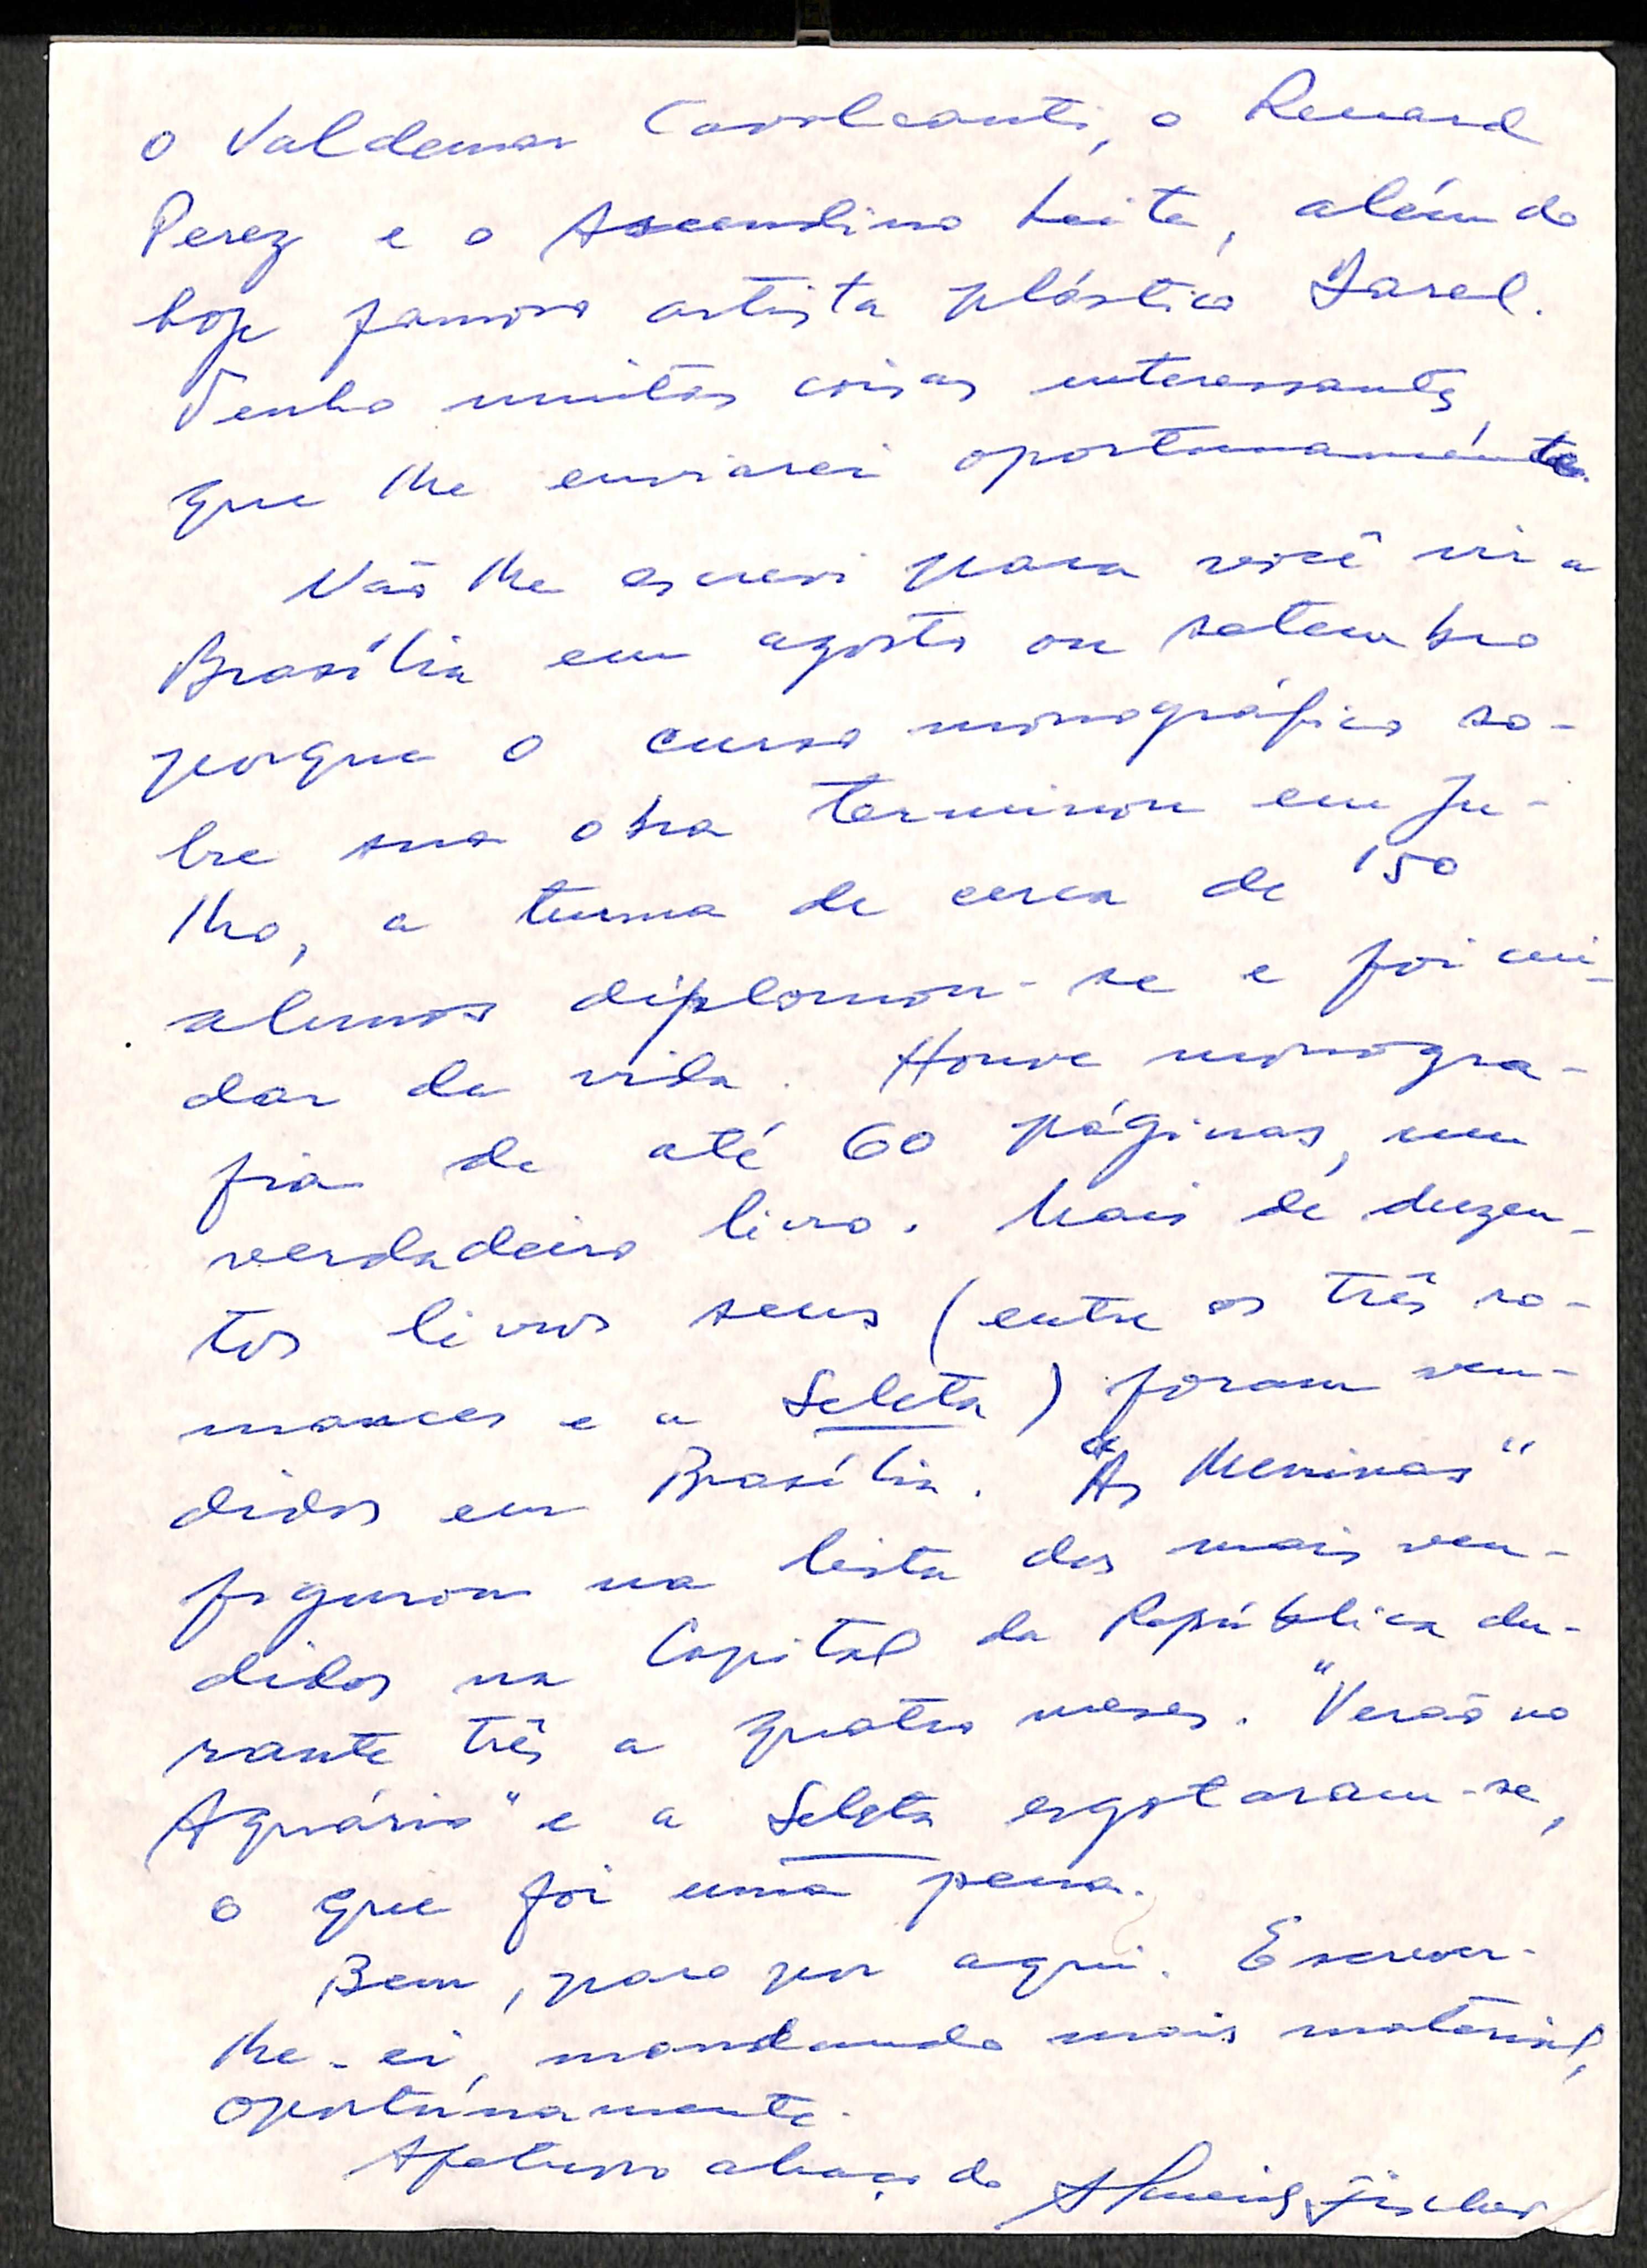 o Valdemar Cavalcanti, o Renard
Perez e o Ascendino Leite, além do
hoje famoso artista plástico Darel.
Tenho muitas coisas interessantes,
que lhe enviarei oportunamente.
Não lhe escrevi para você vir a
Brasília em agosto ou setembro
porque o curso monográfico so-
bre sua obra terminou em ju-
lho, a turma de cerca de 150
alunos diplomou-se e foi cui-
dar da vida. Houve monogra-
fia de até 60 páginas, um
verdadeiro livro. Mais de duzen-
tos livros seus (entre os três ro-
mances e a Seleta) foram ven-
didos em Brasília. "As Meninas"
figurou na lista dos mais ven-
didos na Capital da República du-
rante três a quatro meses. "Verão no
Aquário" e a Seleta esgotaram-se,
o que foi uma pena.
Bem, paro por aqui. Escrever-
lhe-ei, mandando mais material,
oportúnamente.
Afetuoso abraço do Almeida Fischer